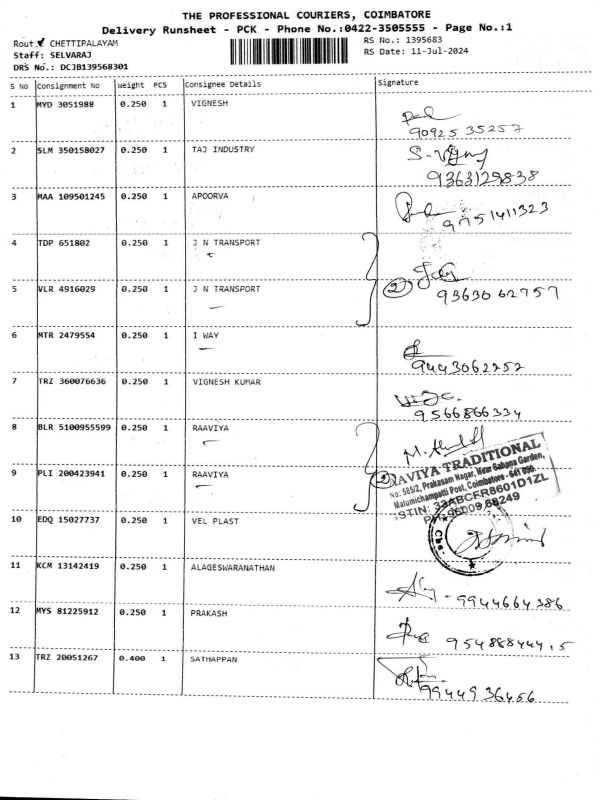 THE PROFESSIONAL COURIERS, COIMBATORE
Delivery Runsheet - PCK - Phone No.:0422-3505555 - Page No.:1
Rout : CHETTIPALAYAM
RS No.: 1395683
Staff: SELVARAJ
RS Date: 11-Jul-2024
DRS No.: DCJB139568301
S No Consignment No Weight PCS Consignee Details Signature
1 MYD 3051988 0.250 1 VIGNESH
90925 35257
2 SLM 350158027 0.250 1 TAJ INDUSTRY
9363129838
3 MAA 109501245 0.250 1 APOORVA
9751411323
4 TDP 651802 0.250 1 J N TRANSPORT
5 VLR 4916029 0.250 1 J N TRANSPORT
2 9363062757
6 MTR 2479554 0.250 1 I WAY
9443062252
7 TRZ 360076636 0.250 1 VIGNESH KUMAR
9566866334
8 BLR 5100955599 0.250 1 RAAVIYA
9 PLI 200423941 0.250 1 RAAVIYA
2
RAVIYA TRADITIONAL
No: 585/2, Prakasam Nagar, Near Sahana Garden,
Malumichampatti Post, Coimbatore - 641 050.
GSTIN: 33ABCFR8601D1ZL
PH: 96009 68249
10 EDQ 15027737 0.250 1 VEL PLAST
11 KCM 13142419 0.250 1 ALAGESWARANATHAN
9944664386
12 MYS 81225912 0.250 1 PRAKASH
9548884415
13 TRZ 20051267 0.400 1 SATHAPPAN
9944936456